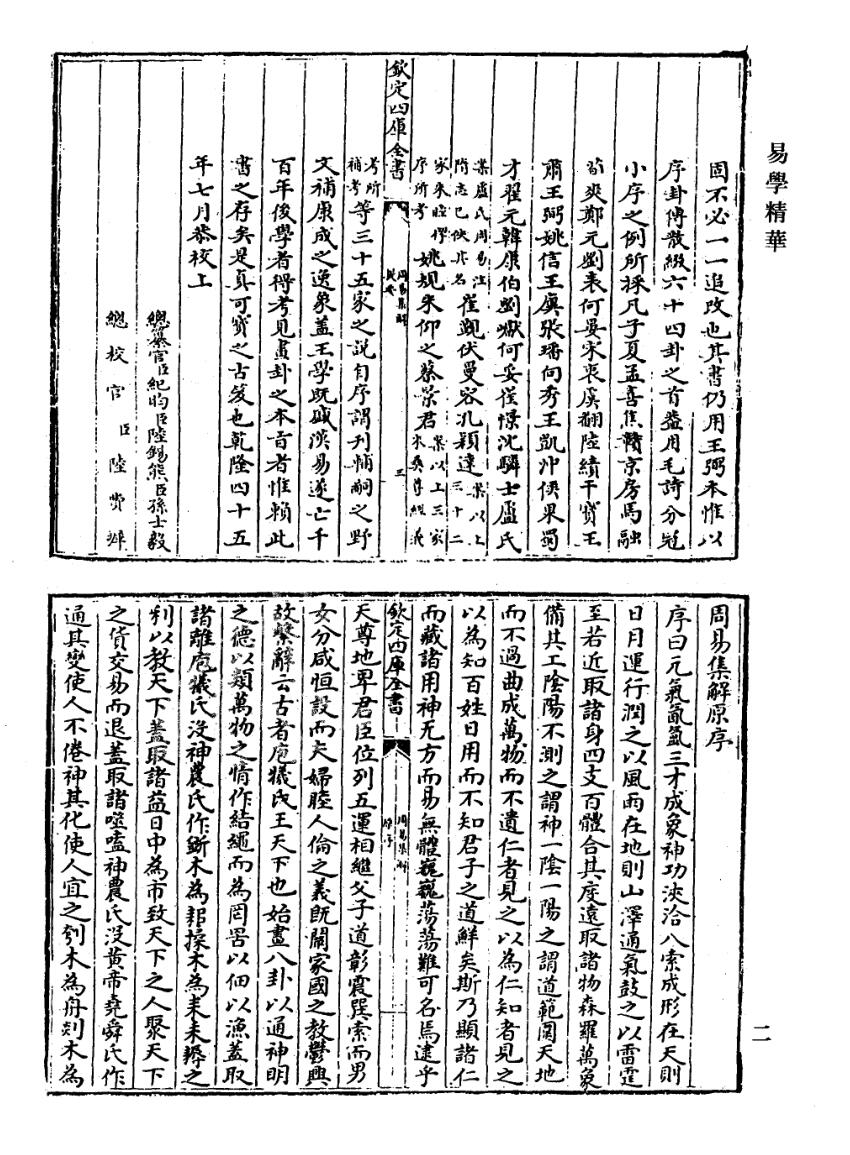 易學精華
固不必一一追改也其書仍用王弼本惟以
序卦傳散綴六十四卦之首葢用毛詩分冠
小序之例所採凡子夏孟喜焦贛京房馬融
荀爽鄭元劉表何晏宋衷虞翻陸績干寶王
肅王弼姚信王廙張璠向秀王凱沖侯果蜀
才翟元韓康伯劉巘何妥崔憬沈驎士盧氏
案盧氏周易注
隋志已佚其名
崔覲伏曼容孔穎達
案以上
三十二
家朱睦㮮
序所考
姚規朱仰之蔡景君
案以上三家
朱彝尊經義
欽定四庫全書
周易集解
提要
三
考所
補考
等三十五家之說自序謂刋輔嗣之野
文補康成之逸象蓋王學既盛漢易遂亡千
百年後學者得考見畫卦之本旨者惟賴此
書之存矣是真可寶之古笈也乾隆四十五
年七月恭校上
總纂官臣紀昀臣陸錫熊臣孫士毅
總校官臣陸費墀
周易集解原序
序曰元氣氤氳三才成象神功浹洽八索成形在天則
日月運行潤之以風雨在地則山澤通氣鼓之以雷霆
至若近取諸身四支百體合其度遠取諸物森羅萬象
備其工陰陽不測之謂神一陰一陽之謂道範圍天地
而不過曲成萬物而不遺仁者見之以為仁知者見之
以為知百姓日用而不知君子之道鮮矣斯乃顯諸仁
而藏諸用神无方而易無體巍巍蕩蕩難可名焉逮乎
欽定四庫全書
周易集解
原序
一
天尊地卑君臣位列五運相繼父子道彰震巽索而男
女分咸恒設而夫婦睦人倫之義既闡家國之教鬱興
故繫辭云古者庖犧氏王天下也始畫八卦以通神明
之德以類萬物之情作結繩而為罔罟以佃以漁蓋取
諸離庖犧氏沒神農氏作斲木為耜揉木為耒耒耨之
利以教天下蓋取諸益日中為市致天下之人聚天下
之貨交易而退蓋取諸噬嗑神農氏沒黃帝堯舜氏作
通其變使人不倦神其化使人宜之刳木為舟剡木為
二